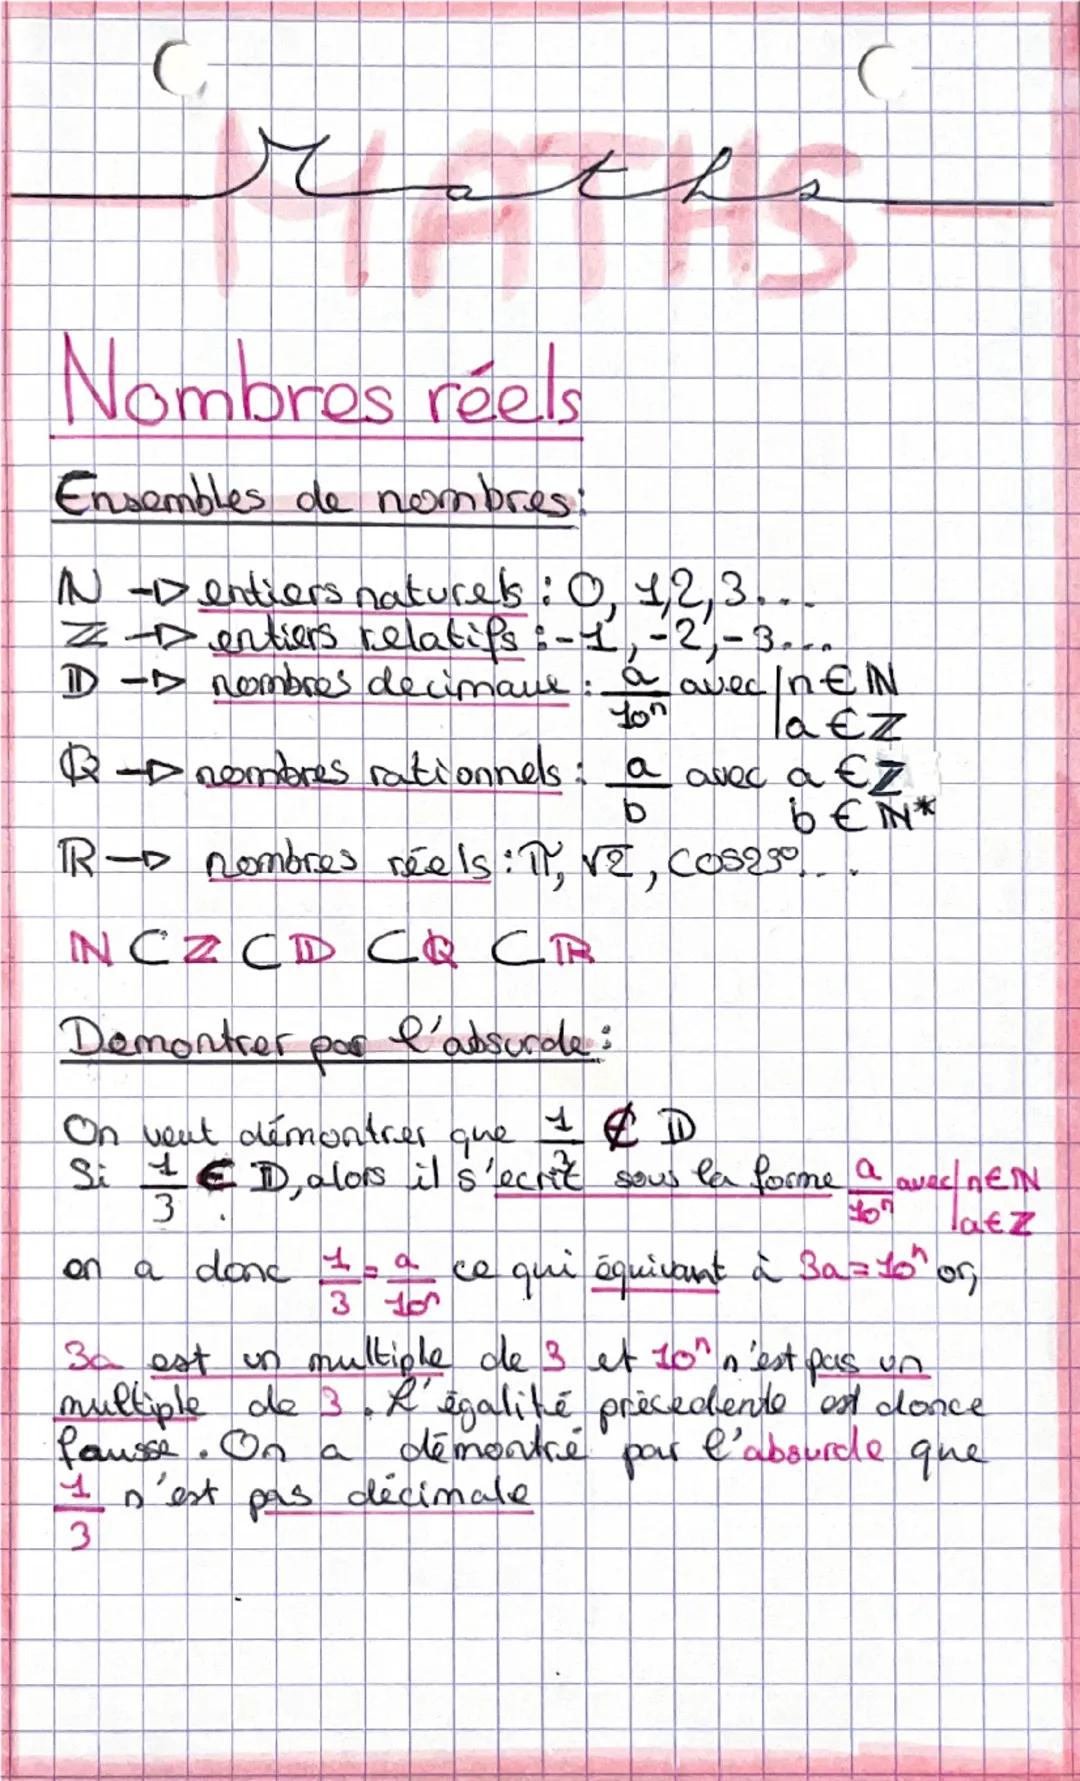 MATHS
Maths
Nombres réels
Ensembles de nombres:
ℕ → entiers naturels : 0, 1,2,3...
ℤ → entiers relatifs : -1, -2, -3...
𝔻 → nombres decimaux : a/10ⁿ avec | n ∈ ℕ
| a ∈ ℤ
ℚ → nombres rationnels : a/b avec a ∈ ℤ
b ∈ ℕ*
ℝ → nombres réels : π, √2, cos23°...
ℕ ⊂ ℤ ⊂ 𝔻 ⊂ ℚ ⊂ ℝ
Demontrer par l'absurde :
On veut démontrer que 1/3 ∉ 𝔻
Si 1/3 ∈ 𝔻, alors il s'ecrit sous la forme a/10ⁿ avec | n ∈ ℕ
| a ∈ ℤ
on a donc 1/3 = a/10ⁿ ce qui équivant à 3a = 10ⁿ or,
3a est un multiple de 3 et 10ⁿ n'est pas un
multiple de 3. L'égalité précedente est donce
fausse. On a démontré par l'absurde que
1/3 n'est pas décimale